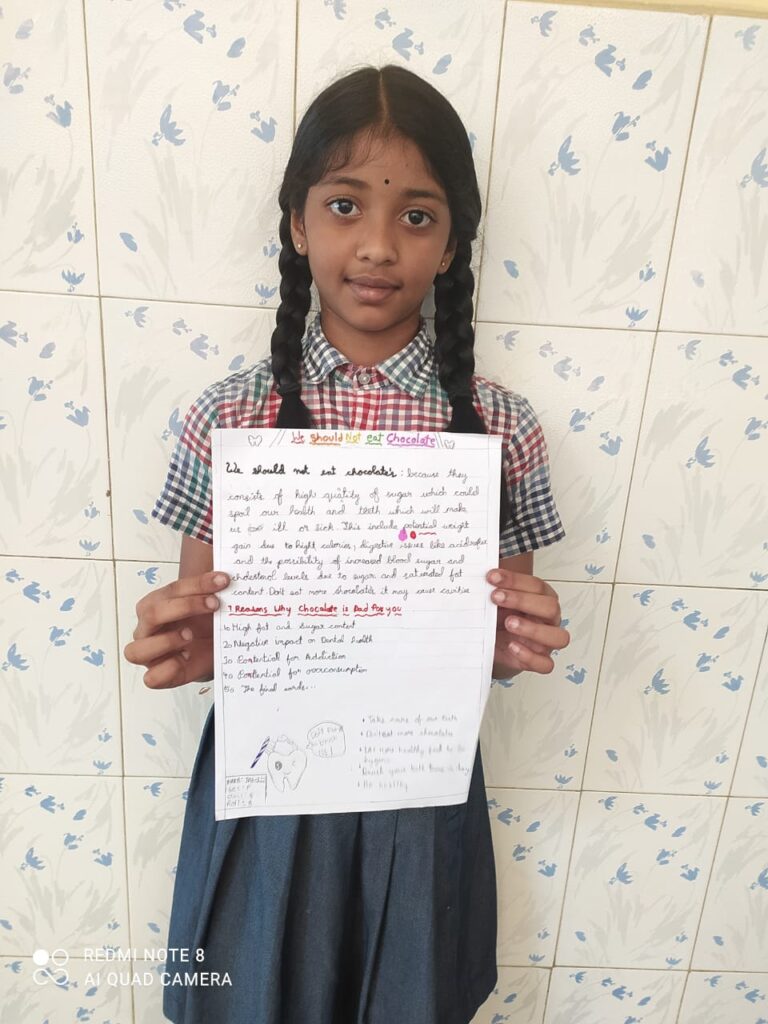 We should Not eat Chocolate
We should not eat chocolate's : because they
consists of high quality of sugar which could
spoil our health and teeth which will make
us ill or sick. This include potential weight
gain due to hight calories, digestive issues like acid reflux
and the possibility of increased blood sugar and
cholesterol levels due to sugar and saturated fat
content. Don't eat more chocolate's it may cause cavities
7 Reasons Why Chocolate is Bad for you
1o High fat and Sugar content
2o Negative impact on Dental health
3o Potential for Addiction
4o Potential for overconsumption
5o The final words...
Don't
to brush
• Take care of our teeth
• Don't eat more chocolate
• Eat more healthy food to be
• Brush your teeth twice a day
• Be healthy
REDMI NOTE 8
AI QUAD CAMERA